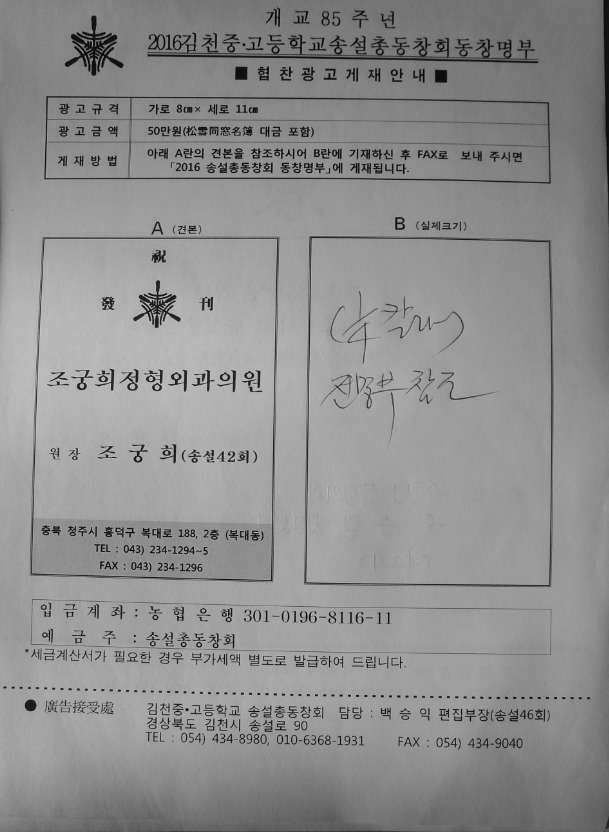 개 교 85 주 년
2016김천중·고등학교송설총동창회동창명부
■ 협 찬 광 고 게 재 안 내 ■
광 고 규 격 가로 8㎝× 세로 11㎝
광 고 금 액 50만원(松雪同窓名簿 대금 포함)
게 재 방 법 아래 A란의 견본을 참조하시어 B란에 기재하신 후 FAX로 보내 주시면
「2016 송설총동창회 동창명부」에 게재됩니다.
A (견본)
祝
發 刊
조궁희정형외과의원
원 장 조 궁 희(송설42회)
충북 청주시 흥덕구 복대로 188, 2층 (복대동)
TEL : 043) 234-1294~5
FAX : 043) 234-1296
B (실제크기)
칼라)
전명부 참조
입 금 계 좌 : 농 협 은 행 301-0196-8116-11
예 금 주 : 송설총동창회
*세금계산서가 필요한 경우 부가세액 별도로 발급하여 드립니다.
● 廣告接受處 김천중·고등학교 송설총동창회 담당 : 백 승 익 편집부장(송설46회)
경상북도 김천시 송설로 90
TEL : 054) 434-8980, 010-6368-1931 FAX : 054) 434-9040